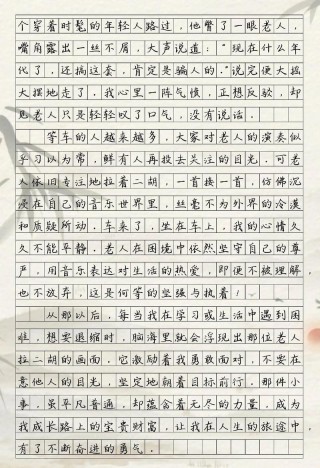 个穿着时髦的年轻人路过，他瞥了一眼老人，
嘴角露出一丝不屑，大声说道：“现在什么年
代了，还搞这套，肯定是骗人的。”说完便大摇
大摆地走了。我心里一阵气愤，正想反驳，却
见老人只是轻轻叹了口气，没有说话。
等车的人越来越多，大家对老人的演奏似
乎习以为常，鲜有人再投去关注的目光。可老
人依旧专注地拉着二胡，一首接一首，仿佛沉
浸在自己的音乐世界里，丝毫不为外界的冷漠
和质疑所动。车来了，坐在车上，我的心情久
久不能平静。老人在困境中依然坚守自己的尊
严，用音乐表达对生活的热爱，即便不被理解，
也不放弃，这是何等的坚强与执着！
从那以后，每当我在学习或生活中遇到困
难，想要退缩时，脑海里就会浮现出那位老人
拉二胡的画面。它激励着我勇敢面对，不要在
意他人的目光，坚定地朝着目标前行。那件小
事，虽平凡普通，却蕴含着无尽的力量，成为
我成长路上的宝贵财富，让我在人生的旅途中，
有了不断奋进的勇气。